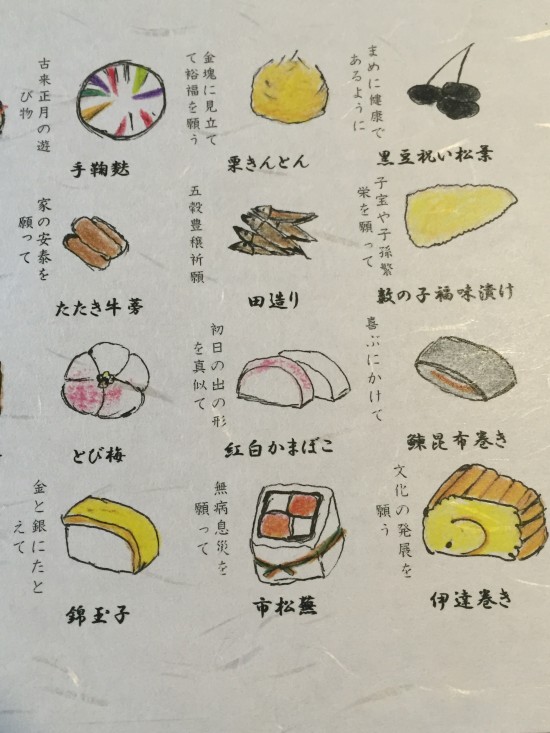 古来正月の遊
び物
手鞠麩
金塊に見立て
て裕福を願う
栗きんとん
まめに健康で
あるように
黒豆祝い松葉
家の安泰を
願って
たたき牛蒡
五穀豊穣祈願
田造り
子宝や子孫繁
栄を願って
数の子福味漬け
とび梅
初日の出の形
を真似て
紅白かまぼこ
喜ぶにかけて
鰊昆布巻き
金と銀にたと
えて
錦玉子
無病息災を
願って
市松蕪
文化の発展を
願う
伊達巻き